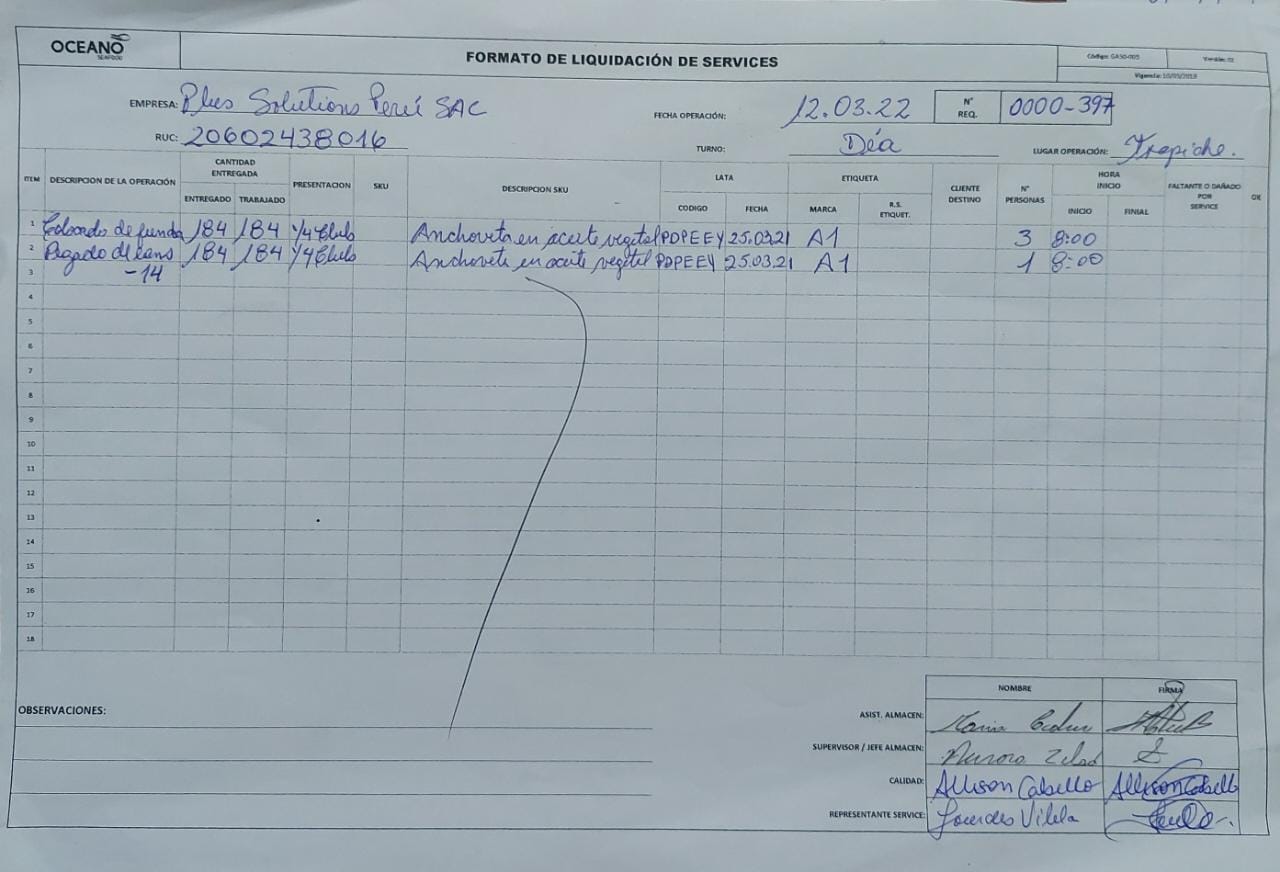 OCEANO
SEAFOOD
FORMATO DE LIQUIDACIÓN DE SERVICES
Código: GASO-005
Versión: 02
Vigencia: 10/05/2019
EMPRESA: Plus Solutions Perú SAC
FECHA OPERACIÓN: 12.03.22
N° REQ. 0000-397
RUC: 20602438016
TURNO: Día
LUGAR OPERACIÓN: Trapiche.
ITEM DESCRIPCION DE LA OPERACIÓN CANTIDAD ENTREGADA PRESENTACION SKU DESCRIPCION SKU LATA ETIQUETA CLIENTE DESTINO N° PERSONAS HORA INICIO FALTANTE O DAÑADO POR SERVICE OK
ENTREGADO TRABAJADO CODIGO FECHA MARCA R.S. ETIQUET. INICIO FINIAL
1 de funda 184 184 1/4 Club Anchoveta en aceite vegetal PDPEEY 25.03.21 A1 3 8:00
2 Pegado de 184 184 1/4 Club Anchoveta en aceite vegetal PDPEEY 25.03.21 A1 1 8:00
3 -14
4
5
6
7
8
9
10
11
12
13
14
15
16
17
18
NOMBRE FIRMA
OBSERVACIONES:
ASIST. ALMACEN:
SUPERVISOR / JEFE ALMACEN:
CALIDAD: Allison Cabello Allison Cabello
REPRESENTANTE SERVICE: Lourdes Vilela